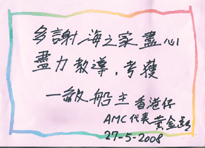 多謝海之家盡心
盡力教導,考獲
一級船主 香港仔
AMC代表 黃金
27-5-2008